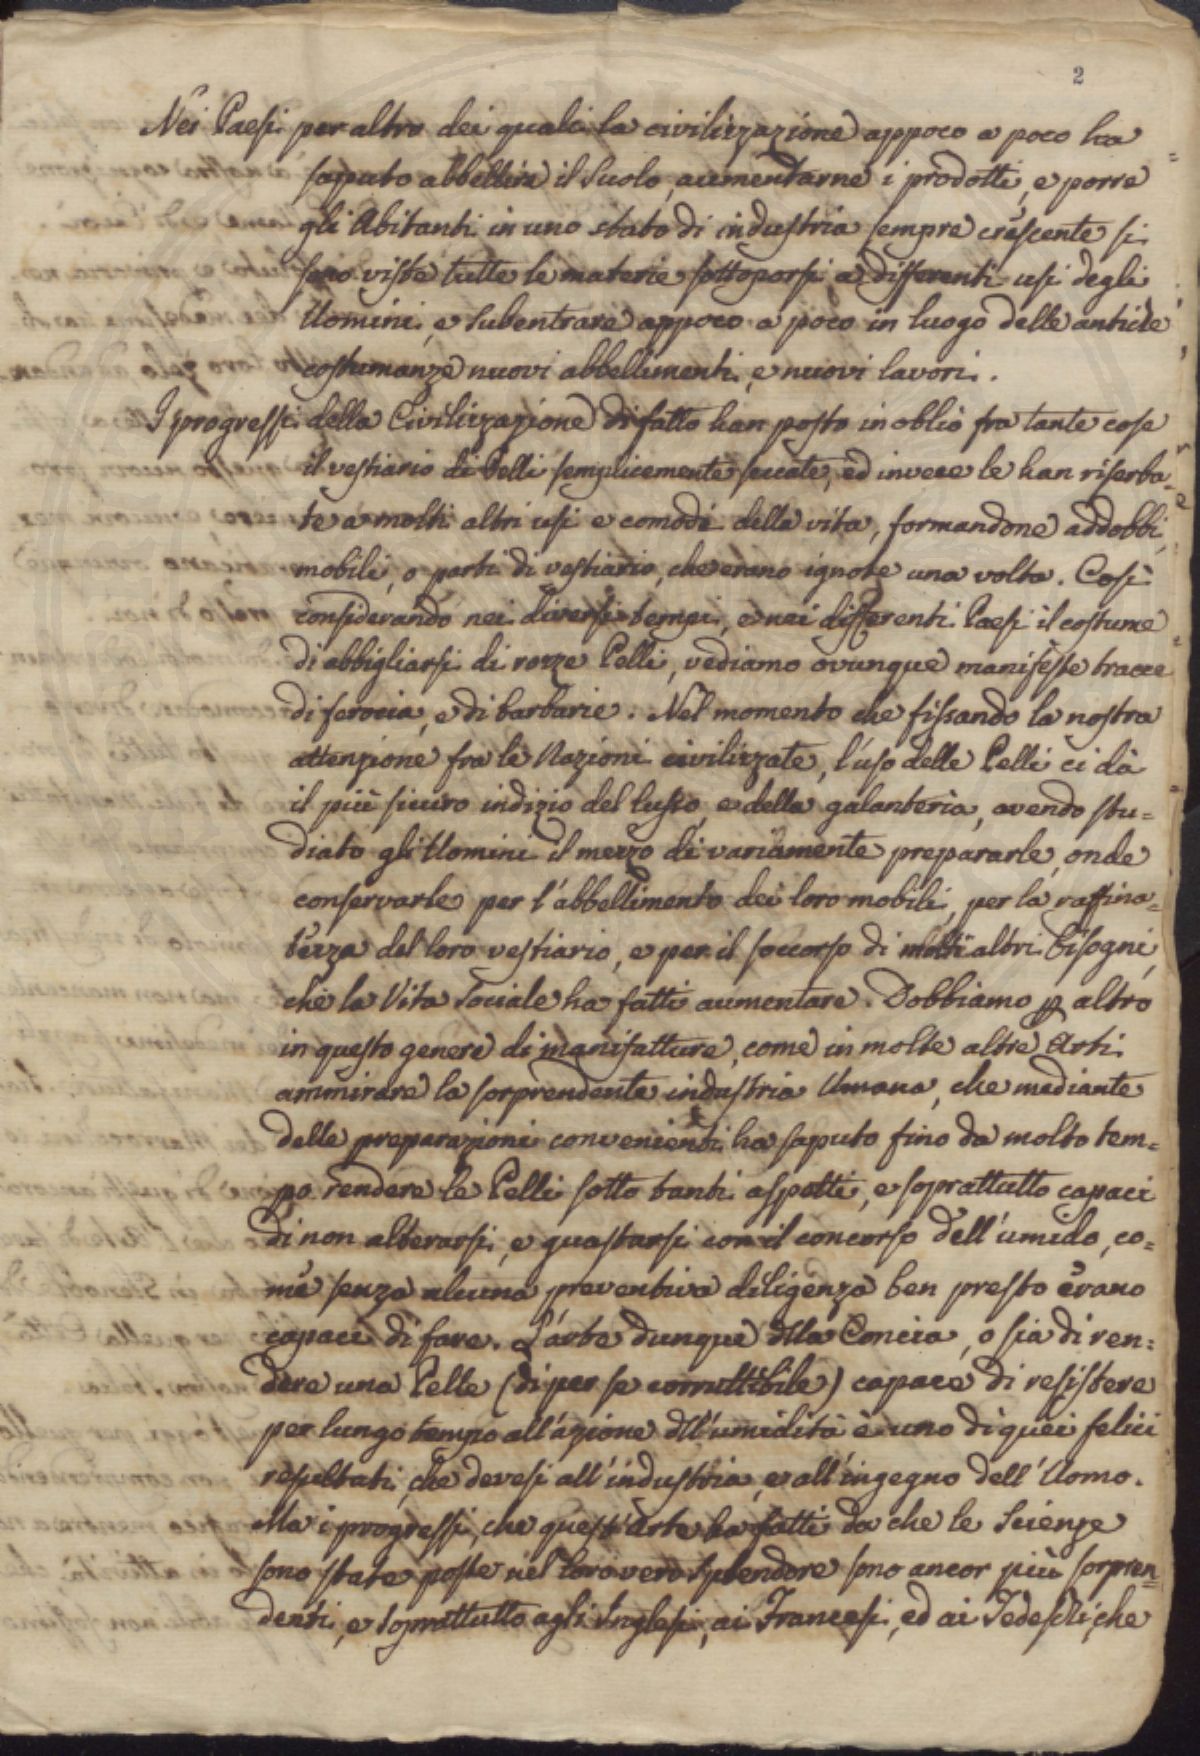 2
Nei Paesi per altro dei quali la civilizzazione appoco a poco ha
saputo abbellire il Suolo, aumentarne i prodotti, e porre
gli Abitanti in uno stato di industria sempre crescente si
sono viste tutte le materie sottoporsi a differenti usi degli
Uomini, e subentrare appoco a poco in luogo delle antiche
costumanze nuovi abbellimenti, e nuovi lavori.
I progressi della Civilizzazione di fatto han posto in oblio fra tante cose
il vestiario di Pelli semplicemente seccate, ed invece le han riserba-
te a molti altri usi e comodi della vita, formandone addobbi,
mobili, o parti di vestiario, che erano ignote una volta. Così
considerando nei diversi tempi, e nei differenti Paesi il costume
di abbigliarsi di rozze Pelli, vediamo ovunque manifeste tracce
di ferocia, e di barbarie. Nel momento che fissando la nostra
attenzione fra le Nazioni civilizzate, l'uso delle Pelli ci dà
il più sicuro indizio del lusso, e della galanteria, avendo stu=
diato gli Uomini il mezzo di variamente prepararle, onde
conservarle per l'abbellimento dei loro mobili, per la raffina=
tezza del loro vestiario, e per il soccorso di molti altri bisogni,
che la Vita Sociale ha fatti aumentare. Dobbiamo p altro
in questo genere di manifatture, come in molte altre Arti
ammirare la sorprendente industria Umana, che mediante
delle preparazioni convenienti ha saputo fino da molto tem=
po rendere le Pelli sotto tanti aspetti, e soprattutto capaci
di non alterarsi, e guastarsi con il concorso dell'umido, co=
me senza alcuna preventiva diligenza ben presto erano
capaci di fare. L'arte dunque dlla Concia, o sia di ren=
dere una Pelle (di per se corruttibile) capace di resistere
per lungo tempo all'azione dll'umidità è uno di quei felici
resultati, che devesi all'industria, e all'ingegno dell'Uomo.
Ma i progressi, che quest'Arte ha fatti da che le Scienze
sono state poste nel loro vero splendore sono ancor più sorpren=
denti, e soprattutto agli Inglesi, ai Francesi, ed ai Tedeschi, che